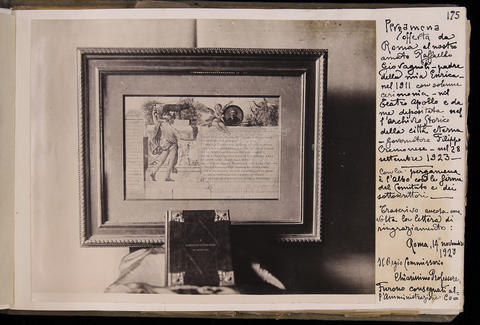 175
Pergamena
offerta da
Roma al nostro
amato Raffaello
Giovagnoli - padre
della mia Enrica -
nel 1911 con solenne
cerimonia - nel
teatro Apollo e da
me depositata nel
l'archivio storico
della città eterna
- governatore Filippo
Cremonesi - nel 28
settembre 1923 -
Con la pergamena
è l'albo con le firme
del Comitato e dei
sottoscrittori -
Trascrivo ancora una
volta la lettera di
ringraziamento:
Roma, 14 novembre
1923
Il Regio Commissario
Chiarissimo Professore,
Furono consegnati al-
l'amministrazione Co=